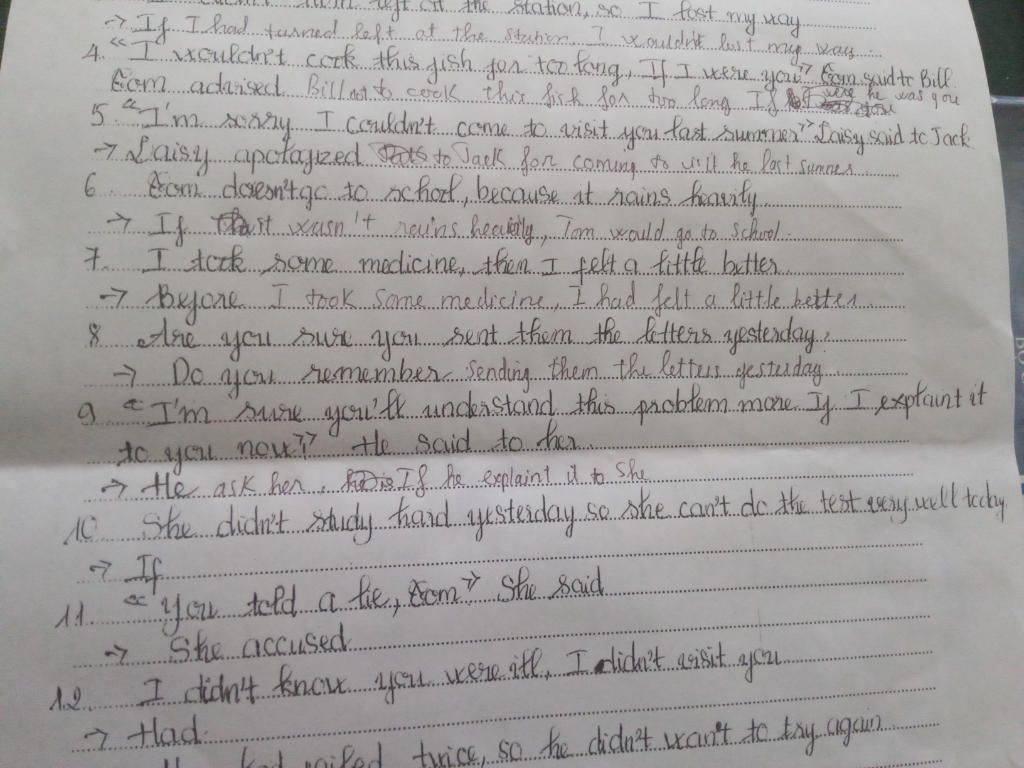 turn left at the station, so I lost my way
→ If I had turned left at the station, I wouldn't lost my way.
4. "I wouldn't cook this fish for too long, If I were you" Tom said to Bill.
Tom advised Bill not to cook this fish for too long If were he was you
5. "I'm sorry I couldn't come to visit you last summer" Daisy said to Jack.
→ Daisy apologized to Jack for coming to visit he last summer.
6. Tom doesn't go to school, because it rains heavily
→ If it wasn't rains heavily, Tom would go to school.
7. I took some medicine, then I felt a little better
→ Before I took some medicine, I had felt a little better
8. Are you sure you sent them the letters yesterday?
→ Do you remember sending them the letters yesterday
9. "I'm sure you'll understand this problem more If I explaint it
to you now" He said to her
→ He ask her, If he explaint it to she
10. She didn't study hard yesterday so she can't do the test very well today.
→ If
11. "You told a lie, Tom" She said
→ She accused
12. I didn't know you were ill, I didn't visit you
→ Had
failed twice, so he didn't want to try again